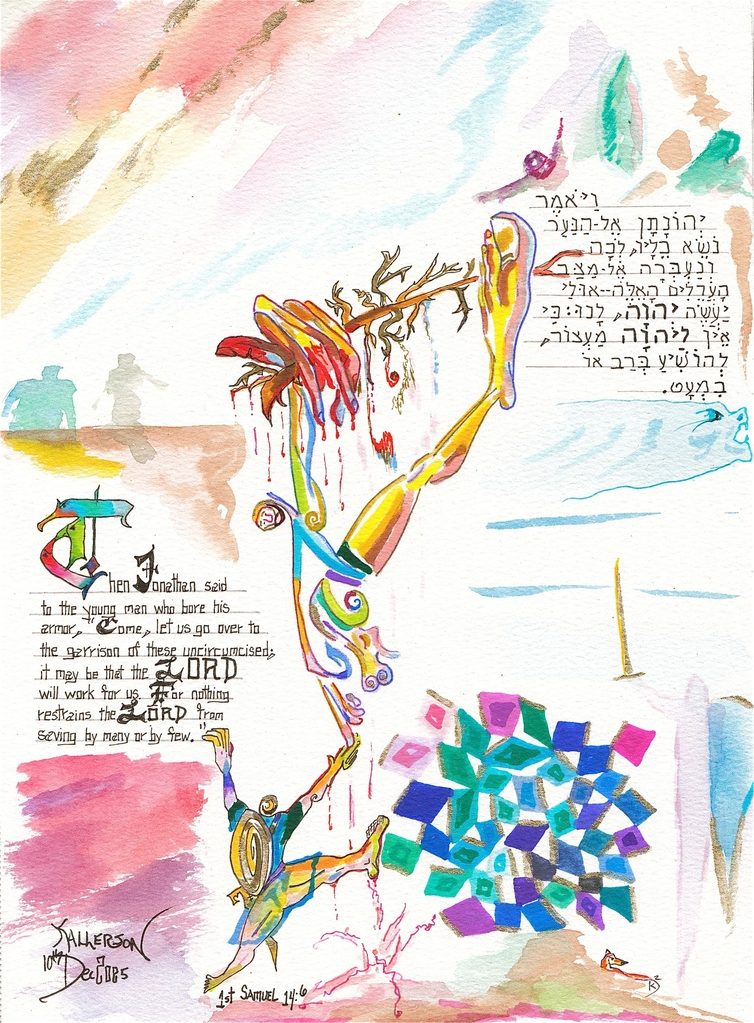 וַיֹּאמֶר
יְהוֹנָתָן אֶל-הַנַּעַר
נֹשֵׂא כֵלָיו, לְכָה
וְנַעְבְּרָה אֶל-מַצַּב
הָעֲרֵלִים הָאֵלֶּה--אוּלַי
יַעֲשֶׂה יְהוָה, לָנוּ: כִּי
אֵין לַיהוָה מַעְצוֹר,
לְהוֹשִׁיעַ בְּרַב אוֹ
בִמְעָט.
Then Jonathan said
to the young man who bore his
armor, "Come, let us go over to
the garrison of these uncircumcised;
it may be that the LORD
will work for us. For nothing
restrains the LORD from
saving by many or by few."
KALLERSON
10th
Dec
1st SAMUEL 14:6